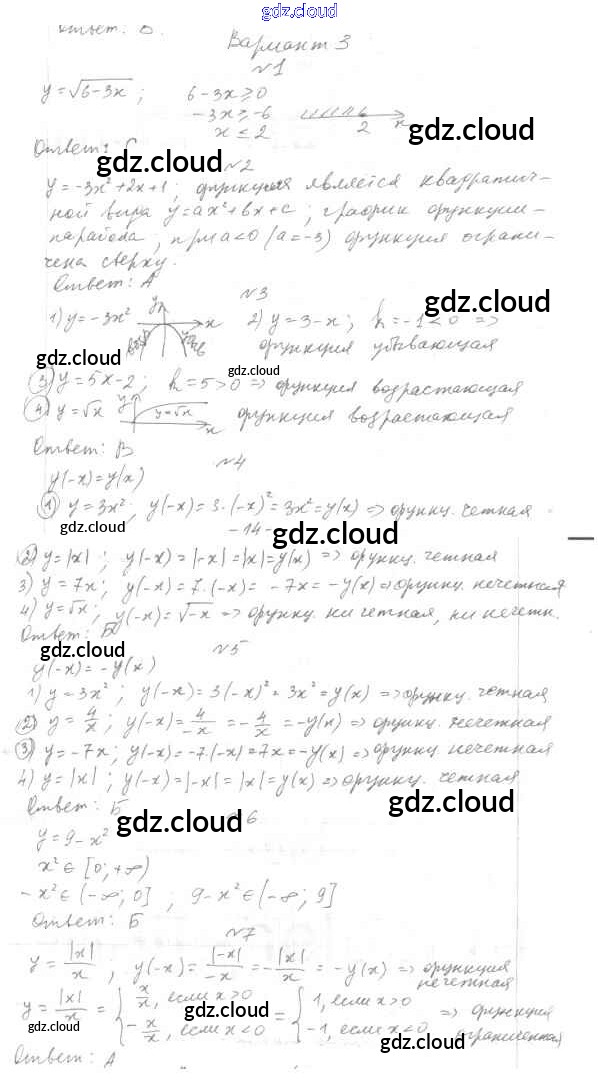 gdz.cloud
Ответ: б.
Вариант 3
№1
y = √(6-3x) ; 6-3x ≥ 0
-3x ≥ -6
x ≤ 2 2 x
gdz.cloud
Ответ:
gdz.cloud
№2
y = -3x² + 2x + 1 ; функция является квадратич-
ной вида y = ax² + bx + c ; график функции -
парабола, при a < 0 (a = -3) функция ограни-
чена сверху.
Ответ: А
№3
gdz.cloud
1) y = -3x² y x 2) y = 3 - x ; k = -1 < 0 =>
функция убывающая
gdz.cloud
gdz.cloud
3) y = 5x - 2 ; k = 5 > 0 => функция возрастающая
4) y = √x y y=√x x функция возрастающая
Ответ: В
№4
y(-x) = y(x)
1) y = 3x² ; y(-x) = 3·(-x)² = 3x² = y(x) => функц. четная
gdz.cloud
-14-
gdz.cloud
2) y = |x| ; y(-x) = |-x| = |x| = y(x) => функц. четная
3) y = 7x ; y(-x) = 7·(-x) = -7x = -y(x) => функц. нечетная
4) y = √x ; y(-x) = √-x => функц. ни четная, ни нечетн.
Ответ: Б
gdz.cloud
№5
y(-x) = -y(x)
1) y = 3x² ; y(-x) = 3(-x)² = 3x² = y(x) => функц. четная
2) y = 4/x ; y(-x) = 4/-x = -4/x = -y(x) => функц. нечетная
3) y = -7x ; y(-x) = -7·(-x) = 7x = -y(x) => функц. нечетная
4) y = |x| ; y(-x) = |-x| = |x| = y(x) => функц. четная
Ответ: Б
gdz.cloud
gdz.cloud
6
y = 9 - x²
x² ∈ [0; +∞)
-x² ∈ (-∞; 0] ; 9 - x² ∈ (-∞; 9]
Ответ: Б
№7
y = |x|/x , y(-x) = |-x|/-x = -|x|/x = -y(x) => функция
нечетная
y = |x|/x = { x/x, если x > 0 = { 1, если x > 0 => функция
-x/x, если x < 0 -1, если x < 0 ограниченная
gdz.cloud
gdz.cloud
gdz.cloud
Ответ: А
gdz.cloud